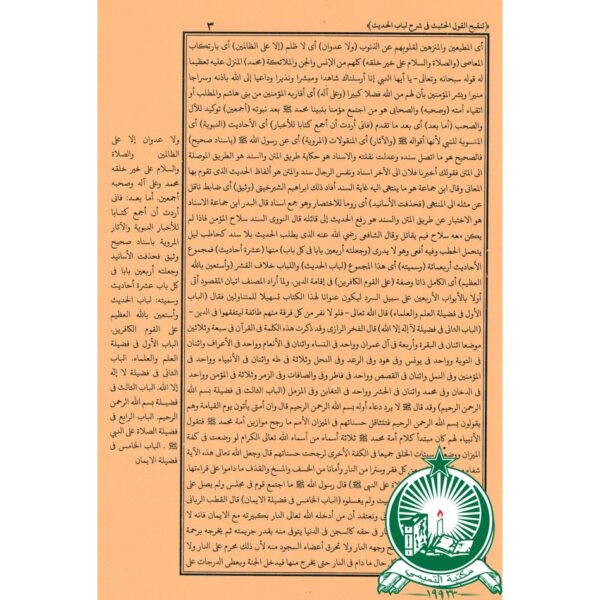 ﴿تنقيح القول الحثيث في شرح لباب الحديث﴾
٣
أى المطيعين والمتزهين لقلوبهم عن الذنوب (ولا عدوان) أى لا ظلم (إلا على الظالمين) أى بارتكاب
المعاصى (والصلاة والسلام على خير خلقه) كلهم من الإنس والجن والملائكة (محمد) المنزل عليه تعظيما
له قوله سبحانه وتعالى - يا أيها النبي إنا أرسلناك شاهدا ومبشرا ونذيرا وداعيا إلى الله باذنه وسراجا
منيرا وبشر المؤمنين بأن لهم من الله فضلا كبيرا (وعلى آله) أى أقاربه المؤمنين من بنى هاشم والمطلب أو
اتقياء أمته (وصحبه) والصحابى هو من اجتمع مؤمنا بنبينا محمد ﷺ بعد نبوته (أجمعين) توكيد للآل
والصحب (أما بعد) أى بعد ما تقدم (فانى أردت أن أجمع كتابا للأخبار) أى الأحاديث (النبوية) أى
المنسوبة للنبي لأنها أقواله ﷺ (والآثار) أى المنقولات (المروية) أى عن رسول الله ﷺ (باسناد صحيح)
فالصحيح هو ما اتصل سنده وعدلت نقلته والاسناد هو حكاية طريق المتن والسند هو الطريق الموصلة
الى المتن فقولك أخبرنا فلان الى الآخر اسناد ونفس الرجال سند والمتن هو ألفاظ الحديث الذى تقوم بها
المعانى وقال ابن جماعة هو ما ينتهى اليه غاية السند أفاد ذلك ابراهيم الشبرخيتى (وثيق) أى ضابط ناقل
عن مثله الى المنتهى (فحذفت الأسانيد) أى روما للاختصار وهو جمع اسناد قال البدر ابن جماعة الاسناد
هو الاخبار عن طريق المتن والسند هو رفع الحديث إلى قائله قال النووى السند سلاح المؤمن فاذا لم
يكن معه سلاح فبم يقاتل وقال الشافعى رضى الله عنه الذى يطلب الحديث بلا سند كحاطب ليل
يتحمل الحطب وفيه أفعى وهو لا يدرى (وجعلته أربعين بابا فى كل باب) منها (عشرة أحاديث) فمجموع
الأحاديث أربعمائة (وسميته) أى هذا المجموع (لباب الحديث) واللباب خلاف القشر (وأستعين بالله
العظيم) أى الكامل ذاتا وصفة (على القوم الكافرين) فى إقامة الدين. ولما أراد المصنف اتيان المقصود أتى
أولا بالأبواب الأربعين على سبيل السرد ليكون عنوانا لهذا الكتاب تسهيلا للمتناولين فقال (الباب
الأول فى فضيلة العلم والعلماء) قال الله تعالى - فلو لا نفر من كل فرقة منهم طائفة ليتفقهوا فى الدين -
(الباب الثانى فى فضيلة لا إله إلا الله) قال الفخر الرازى وقد ذكرت هذه الكلمة فى القرآن فى سبعة وثلاثين
موضعا اثنان فى البقرة وأربعة فى آل عمران وواحد فى النساء واثنان فى الأنعام وواحد فى الأعراف واثنان
فى التوبة وواحد فى يونس وفى هود وفى الرعد وفى النحل وثلاثة فى طه واثنان فى الأنبياء وواحد فى
المؤمنين وفى النمل واثنان فى القصص وواحد فى فاطر وفى والصافات وفى الزمر وثلاثة فى المؤمن وواحد
فى الدخان وفى محمد واثنان فى الحشر وواحد فى التغابن وفى المزمل (الباب الثالث فى فضيلة بسم الله
الرحمن الرحيم) وقد قال ﷺ لا يرد دعاء أوله بسم الله الرحمن الرحيم قال وان أمتى يأتون يوم القيامة وهم
يقولون بسم الله الرحمن الرحيم فتثقل حسناتهم فى الميزان فتقول الأمم ما رجح موازين أمة محمد ﷺ فتقول
الأنبياء لهم كان مبتدأ كلام أمة محمد ﷺ ثلاثة أسماء من أسماء الله تعالى الكرام لو وضعت فى كفة
الميزان ووضعت سيئات الخلق جميعا فى الكفة الأخرى لرجحت حسناتهم قال وجعل الله تعالى هذه الآية
شفاء من كل فقر وسترا من النار وأمانا من الخسف والمسخ والقذف ما داموا على قراءتها.
على النبى ﷺ) قال رسول الله ﷺ ما اجتمع قوم فى مجلس ولم يصل على
ولم يغسلوه (الباب الخامس فى فضيلة الايمان) قال القطب الربانى
ونعتقد أن من أدخله الله تعالى النار بكبيرته مع الايمان فانه لا
فى حقه كالسجن فى الدنيا يتوفى منه بقدر جريمته ثم يخرجه برحمة
وجهه النار ولا تحرق أعضاء السجود منه لأن ذلك محرم على النار ولا
حال ما دام فى النار حتى يخرج منها فيدخل الجنة ويعطى الدرجات على
ولا عدوان إلا على
الظالمين والصلاة
والسلام على خير خلقه
محمد وعلى آله وصحبه
أجمعين. أما بعد: فانى
أردت أن أجمع كتابا
للأخبار النبوية والآثار
المروية باسناد صحيح
وثيق فحذفت الأسانيد
وجعلته أربعين بابا فى
كل باب عشرة أحاديث
وسميته: لباب الحديث
وأستعين بالله العظيم
على القوم الكافرين.
الباب الأول فى فضيلة
العلم والعلماء. الباب
الثانى فى فضيلة لا إله
إلا الله. الباب الثالث فى
فضيلة بسم الله الرحمن
الرحيم. الباب الرابع فى
فضيلة الصلاة على النبي
ﷺ. الباب الخامس فى
فضيلة الايمان
مكتبة التميمي
١٩٩٢